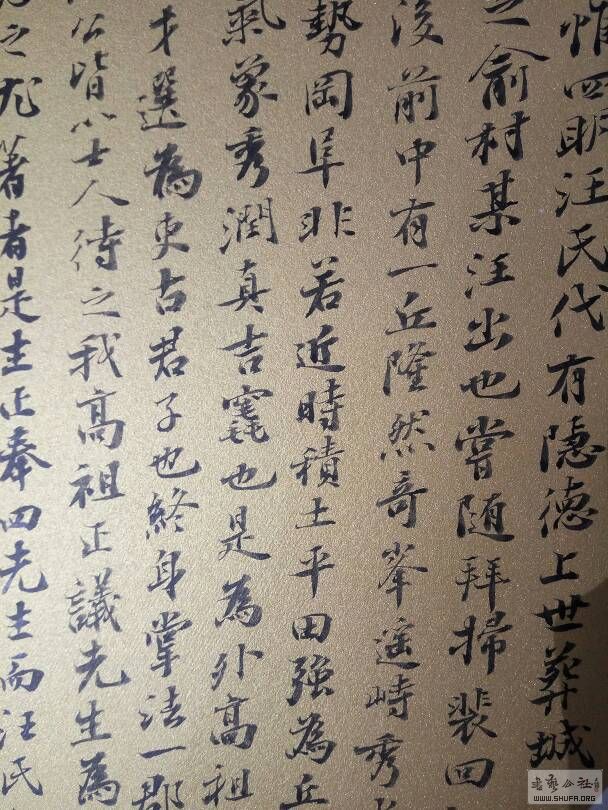 惟四明汪氏代有隠徳上世葬城
之俞村某汪出也嘗随拜掃裴回
後前中有一丘隆然奇峯遥峙秀
勢岡阜非若近時積土平田强為丘
氣象秀潤真吉窀也是為外髙祖
才選為吏古君子也終身掌法一郡
公皆以士人待之我髙祖正議先生為
之尤著者是生正奉四先生而汪氏
书艺公社
WWW.SHUFA.ORG